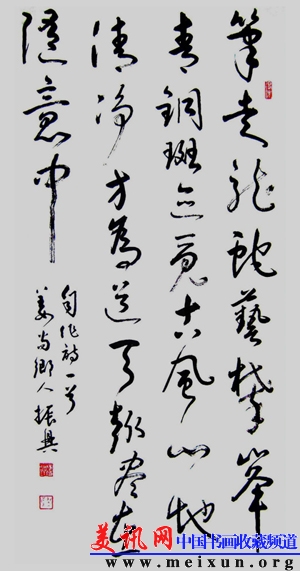 筆走龍蛇藝攀峯
青銅斑迹覓古風心地
清净方為道天盡在
隨意中
自作詩一首
姜尚鄉人振興
美讯网 中国书画收藏频道
www.meixun.org